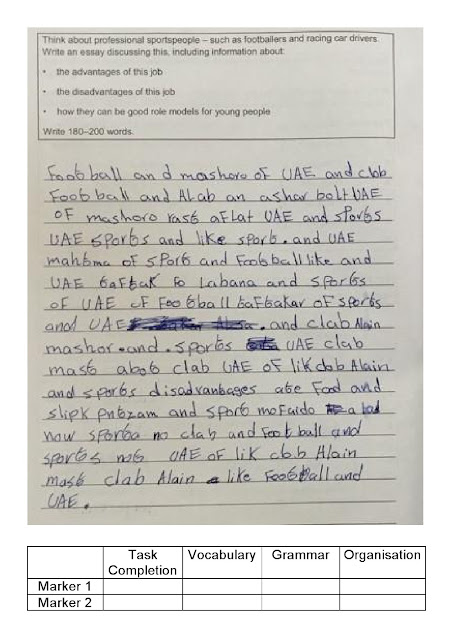 Think about professional sportspeople – such as footballers and racing car drivers.
Write an essay discussing this, including information about:
• the advantages of this job
• the disadvantages of this job
• how they can be good role models for young people
Write 180–200 words.
Football and mashoro of UAE and clob
Football and ALab an ashar bolt UAE
OF mashoro rast aflat UAE and sports
UAE sports and like sport. and UAE
mahtma of sport and Football like and
UAE taftak to Labana and sports
of UAE of Football taftakar of sports
and UAE . and clab Alain
mashor. and. sports UAE clab
mast abot clab UAE of lik clob Alain
and sports disadvantages ate Food and
slipk pntzam and sport mofaido a lad
now sportsa no clab and Football and
sports not UAE of lik clob Alain
mast clab Alain like Football and
UAE.
Task Completion Vocabulary Grammar Organisation
Marker 1
Marker 2